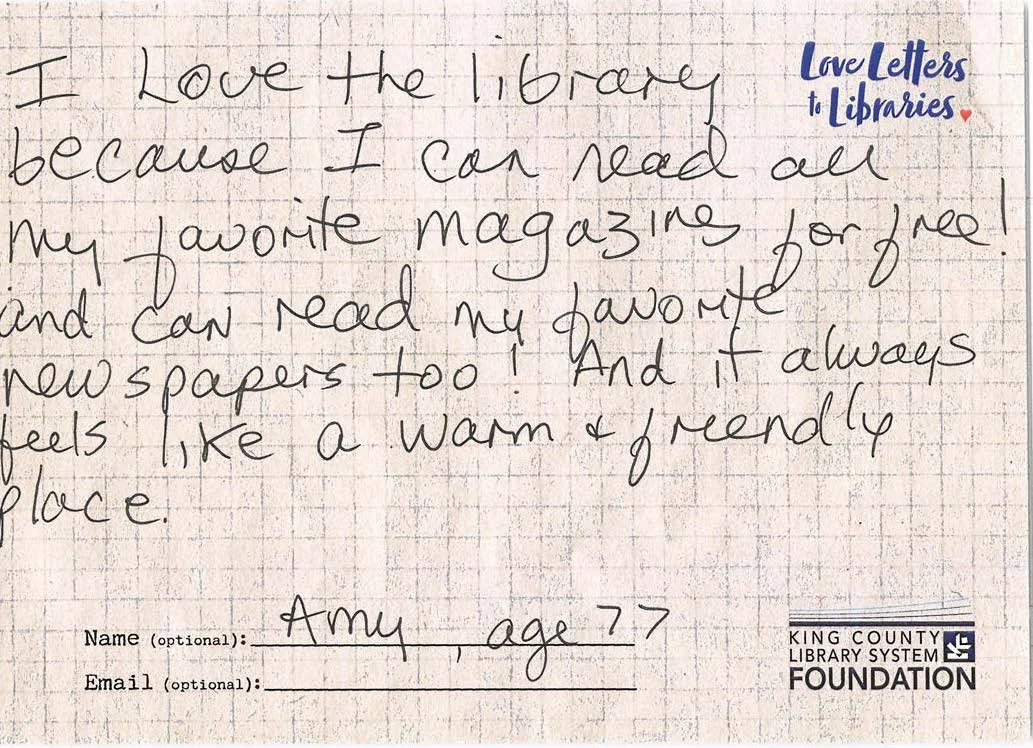 Love Letters
to Libraries
I Love the library
because I can read all
my favorite magazines for free!
and can read my favorite
newspapers too! And it always
feels like a warm & friendly
place.
Name (optional): Amy, age 77
Email (optional):
KING COUNTY
LIBRARY SYSTEM
FOUNDATION